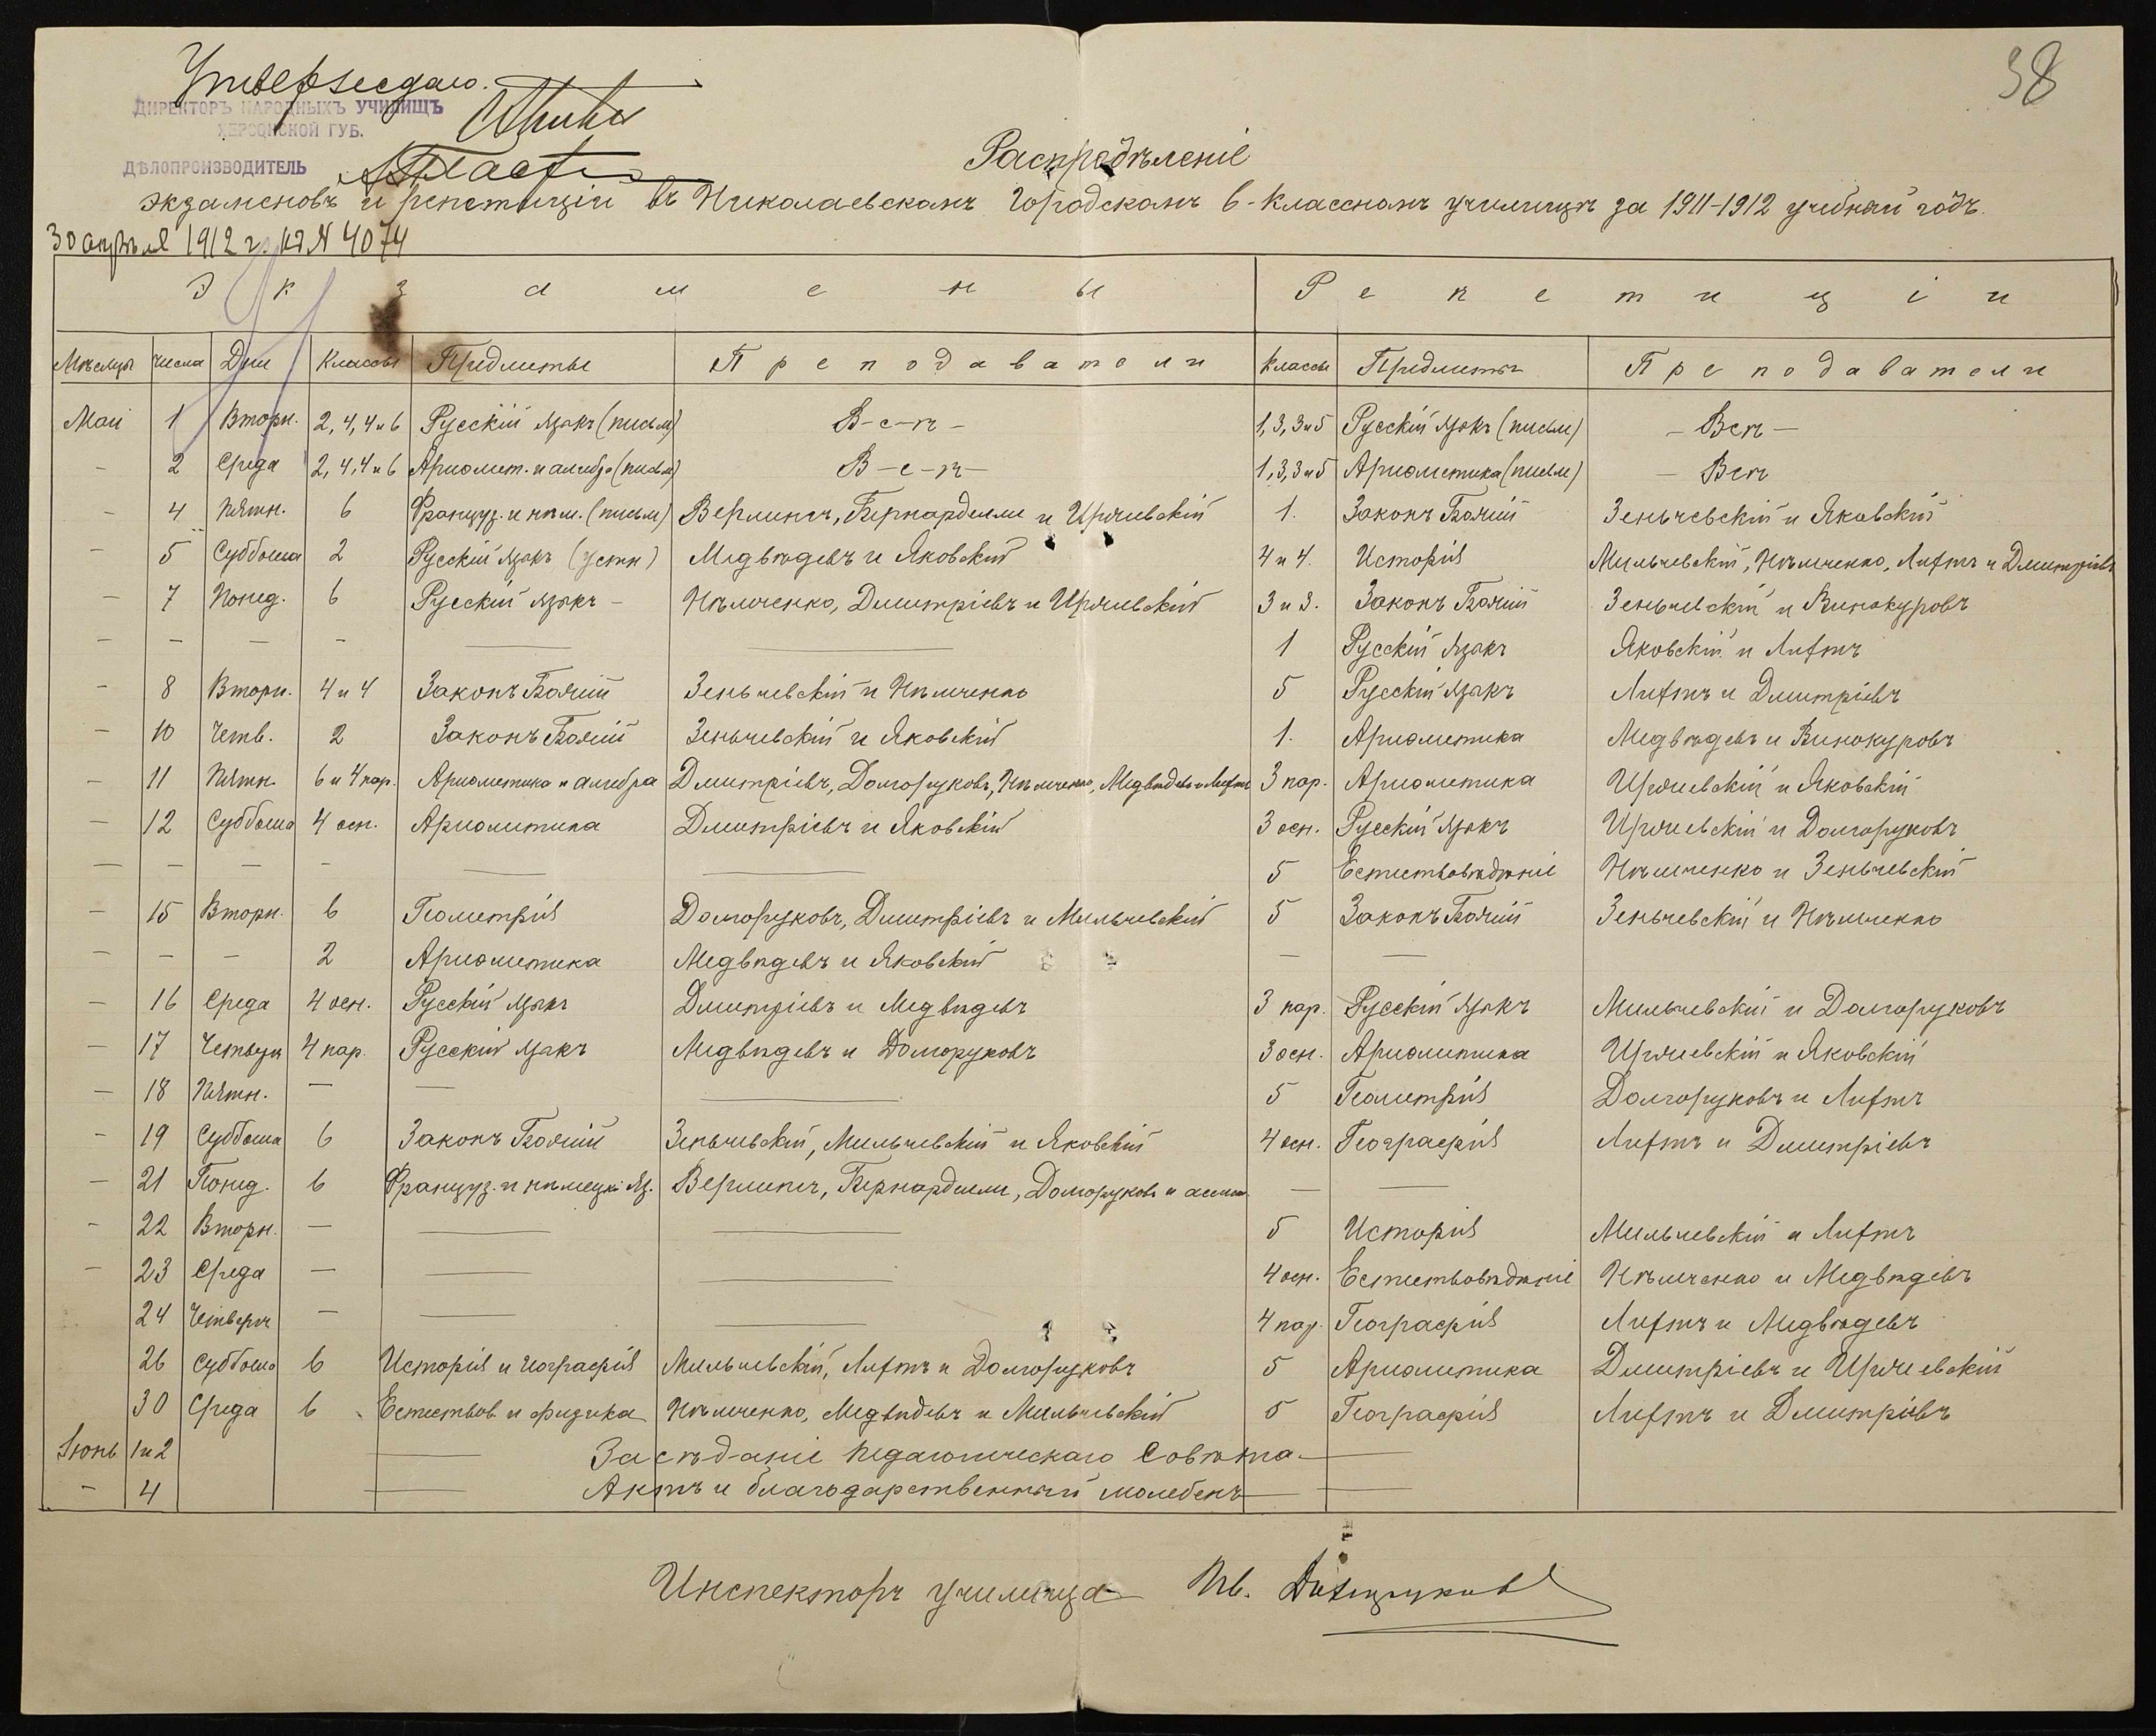 38
Утверждаю.
ДИРЕКТОРЪ НАРОДНЫХЪ УЧИЛИЩЪ
ХЕРСОНСКОЙ ГУБ.
ДѢЛОПРОИЗВОДИТЕЛЬ
Распредѣленіе
экзаменовъ и репетицій въ Николаевскомъ Городскомъ 6-классномъ училищѣ за 1911-1912 учебный годъ.
30 апрѣля 1912 г. № 4074
Экзамены Репетиціи
Мѣсяцы Числа Дни Классы Предметы Преподаватели Классы Предметы Преподаватели
Май 1 Вторн. 2, 4, 4 и 6 Русскій языкъ (письм) В-с-ѣ - 1, 3, 3 и 5 Русскій языкъ (письм) - Всѣ -
- 2 Среда 2, 4, 4 и 6 Ариѳмет. и алгебра (письм) В-с-ѣ- 1, 3, 3 и 5 Ариѳметика (письм) - Всѣ
- 4 Пятн. 6 Француз. и нѣм. (письм) Верлингъ, Бернардели и Иржиевскій 1. Законъ Божій Зеньчевскій и Яковскій
- 5 Суббота 2 Русскій языкъ (устн) Медвѣдевъ и Яковскій 4 и 4. Исторія Мильчевскій, Нѣмченко, Лифтъ и Дмитріевъ
- 7 Понед. 6 Русскій языкъ - Нѣмченко, Дмитріевъ и Иржиевскій 3 и 3. Законъ Божій Зеньчевскій и Винокуровъ
- - - - — — 1 Русскій языкъ Яковскій и Лифтъ
- 8 Вторн. 4 и 4 Законъ Божій Зеньчевскій и Нѣмченко 5 Русскій языкъ Лифтъ и Дмитріевъ
- 10 Четв. 2 Законъ Божій Зеньчевскій и Яковскій 1. Ариѳметика Медвѣдевъ и Винокуровъ
- 11 Пятн. 6 и 4 пар. Ариѳметика и алгебра Дмитріевъ, Долгоруковъ, Нѣмченко, Медвѣдевъ и Лифтъ 3 пар. Ариѳметика Иржиевскій и Яковскій
- 12 Суббота 4 осн. Ариѳметика Дмитріевъ и Яковскій 3 осн. Русскій языкъ Иржиевскій и Долгоруковъ
- - - - — — 5 Естествовѣдѣніе Нѣмченко и Зеньчевскій
- 15 Вторн. 6 Геометрія Долгоруковъ, Дмитріевъ и Мильчевскій 5 Законъ Божій Зеньчевскій и Нѣмченко
- - - 2 Ариѳметика Медвѣдевъ и Яковскій — —
- 16 Среда 4 осн. Русскій языкъ Дмитріевъ и Медвѣдевъ 3 пар. Русскій языкъ Мильчевскій и Долгоруковъ
- 17 Четвергъ 4 пар. Русскій языкъ Медвѣдевъ и Долгоруковъ 3 осн. Ариѳметика Иржиевскій и Яковскій
- 18 Пятн. — — — 5 Геометрія Долгоруковъ и Лифтъ
- 19 Суббота 6 Законъ Божій Зеньчевскій, Мильчевскій и Яковскій 4 осн. Географія Лифтъ и Дмитріевъ
- 21 Понед. 6 Француз. и нѣмецк. яз. Верлингъ, Бернардели, Долгоруковъ и — —
- 22 Вторн. — — — 5 Исторія Мильчевскій и Лифтъ
- 23 Среда — — — 4 осн. Естествовѣдѣніе Нѣмченко и Медвѣдевъ
24 Четвергъ — — — 4 пар. Географія Лифтъ и Медвѣдевъ
26 Суббота 6 Исторія и географія Мильчевскій, Лифтъ и Долгоруковъ 5 Ариѳметика Дмитріевъ и Иржиевскій
30 Среда 6 Естествов. и физика Нѣмченко, Медвѣдевъ и Мильчевскій 5 Географія Лифтъ и Дмитріевъ
Іюнь 1 и 2 — Засѣданіе Педагогическаго Совѣта. —
- 4 — Актъ и благодарственный молебенъ —
Инспекторъ училища Ив. Долгоруковъ